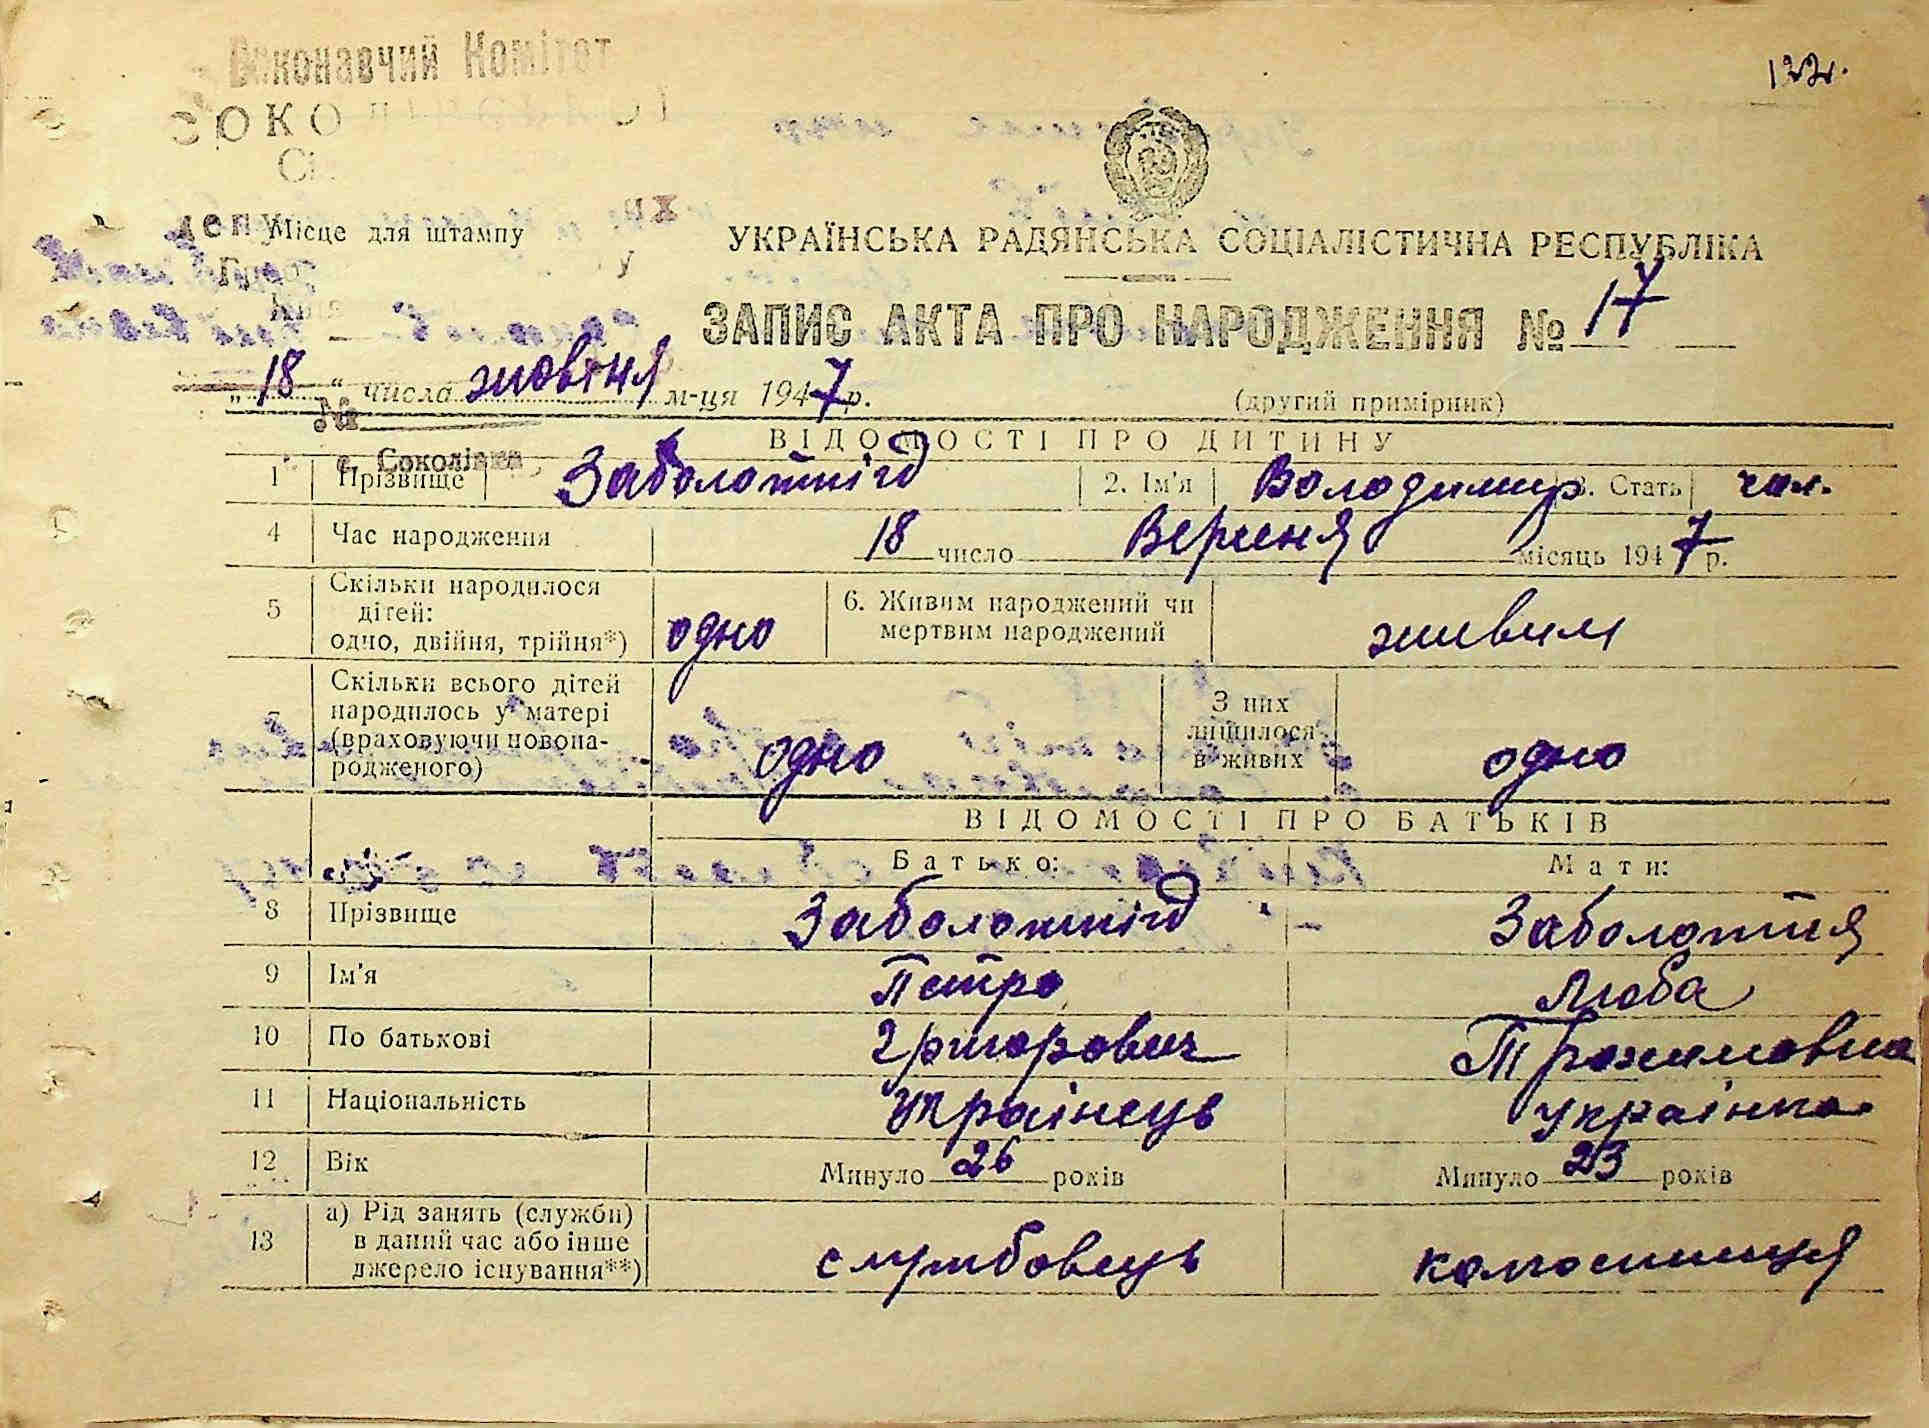 Виконавчий Комітет
СОКО
депу
122.
Місце для штампу
УКРАЇНСЬКА РАДЯНСЬКА СОЦІАЛІСТИЧНА РЕСПУБЛІКА
ЗАПИС АКТА ПРО НАРОДЖЕННЯ № 17
„18“ числа жовтня м-ця 1947 р.
(другий примірник)
№
с. Соколівка
ВІДОМОСТІ ПРО ДИТИНУ
1 Прізвище Заболотній 2. Ім'я Володимир 3. Стать чол.
4 Час народження 18 число Вересня місяць 1947 р.
5 Скільки народилося дітей: одно, двійня, трійня*) одно 6. Живим народжений чи мертвим народжений живим
7 Скільки всього дітей народилось у матері (враховуючи новонародженого) одно З них лишилося в живих одно
ВІДОМОСТІ ПРО БАТЬКІВ
Батько: Мати:
8 Прізвище Заболотній Заболотня
9 Ім'я Петро Люба
10 По батькові Григорович Трохимовна
11 Національність Українець Українка
12 Вік Минуло 26 років Минуло 23 років
13 а) Рід занять (служби) в даний час або інше джерело існування**) службовець колгоспниця